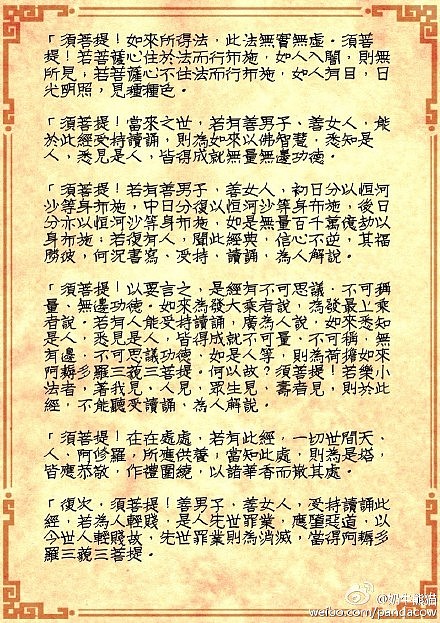 「須菩提！如來所得法，此法無實無虛。須菩
提！若菩薩心住於法而行布施，如人入闇，則無
所見，若菩薩心不住法而行布施，如人有目，日
光明照，見種種色。
「須菩提！當來之世，若有善男子、善女人，能
於此經受持讀誦，則為如來以佛智慧，悉知是
人，悉見是人，皆得成就無量無邊功德。
「須菩提！若有善男子，善女人，初日分以恒河
沙等身布施，中日分復以恒河沙等身布施，後日
分亦以恒河沙等身布施，如是無量百千萬億劫以
身布施；若復有人，聞此經典，信心不逆，其福
勝彼，何況書寫、受持，讀誦，為人解說。
「須菩提！以要言之，是經有不可思議，不可稱
量、無邊功德。如來為發大乘者說，為發最上乘
者說。若有人能受持讀誦，廣為人說，如來悉知
是人，悉見是人，皆得成就不可量、不可稱，無
有邊，不可思議功德，如是人等，則為荷擔如來
阿耨多羅三藐三菩提。何以故？須菩提！若樂小
法者，著我見，人見，眾生見，壽者見，則於此
經，不能聽受讀誦、為人解說。
「須菩提！在在處處，若有此經，一切世間天、
人、阿修羅，所應供養；當知此處，則為是塔，
皆應恭敬，作禮圍繞，以諸華香而散其處。
「復次，須菩提！善男子，善女人，受持讀誦此
經，若為人輕賤，是人先世罪業，應墮惡道，以
今世人輕賤故，先世罪業則為消滅，當得阿耨多
羅三藐三菩提。
@奶牛熊猫
weibo.com/pandacow